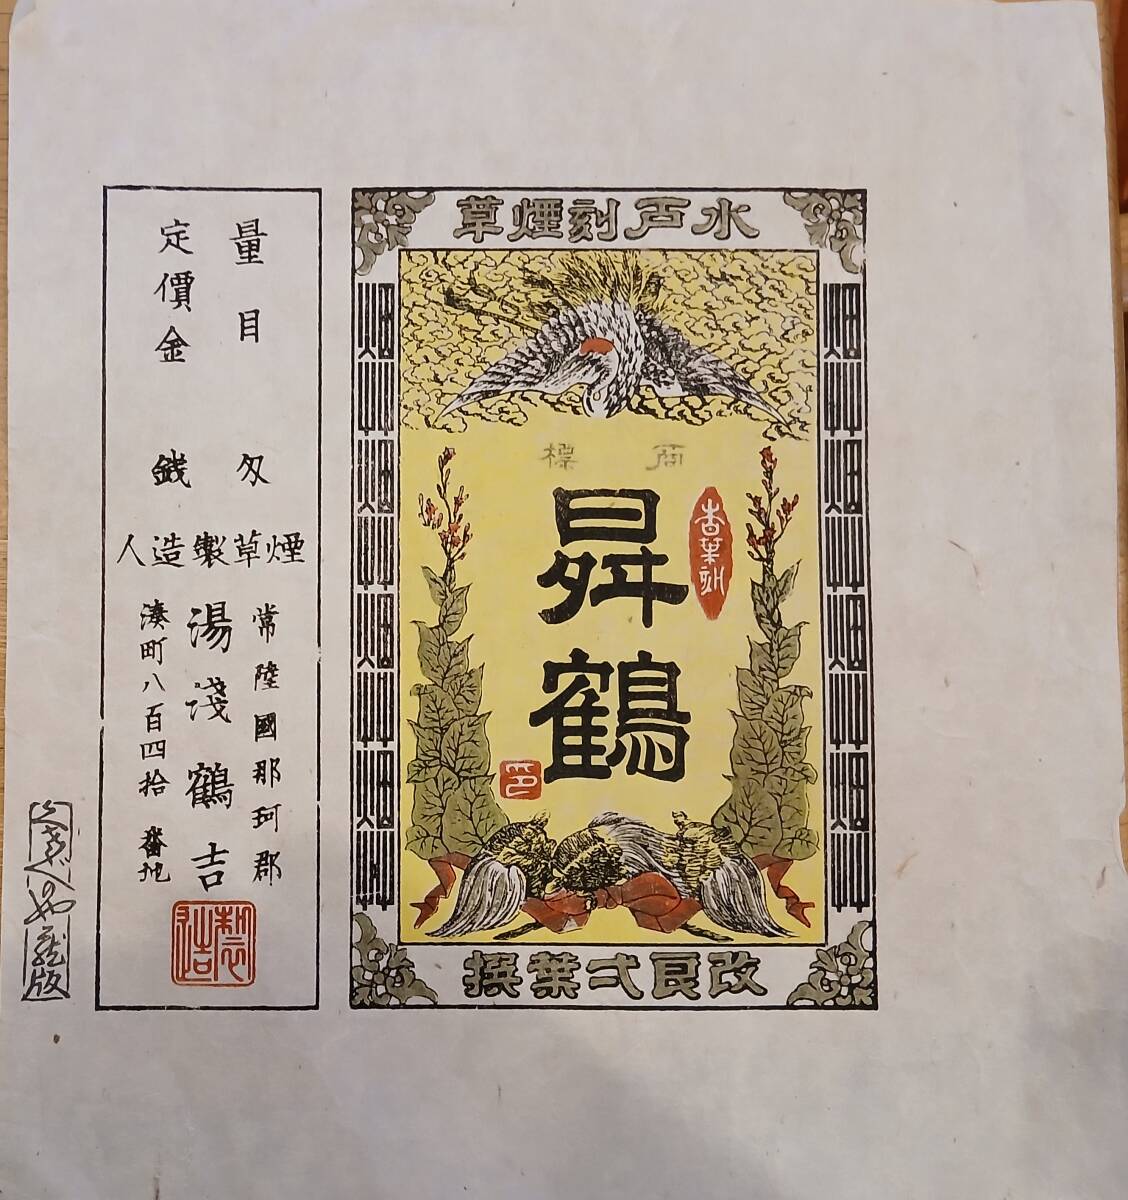 水戸刻煙草
商標
昇鶴
香葉刻
印
改良弐葉撰
量目 匁
定價金 銭
煙草製造人
常陸國那珂郡
湊町八百四拾番地
湯淺鶴吉
製造